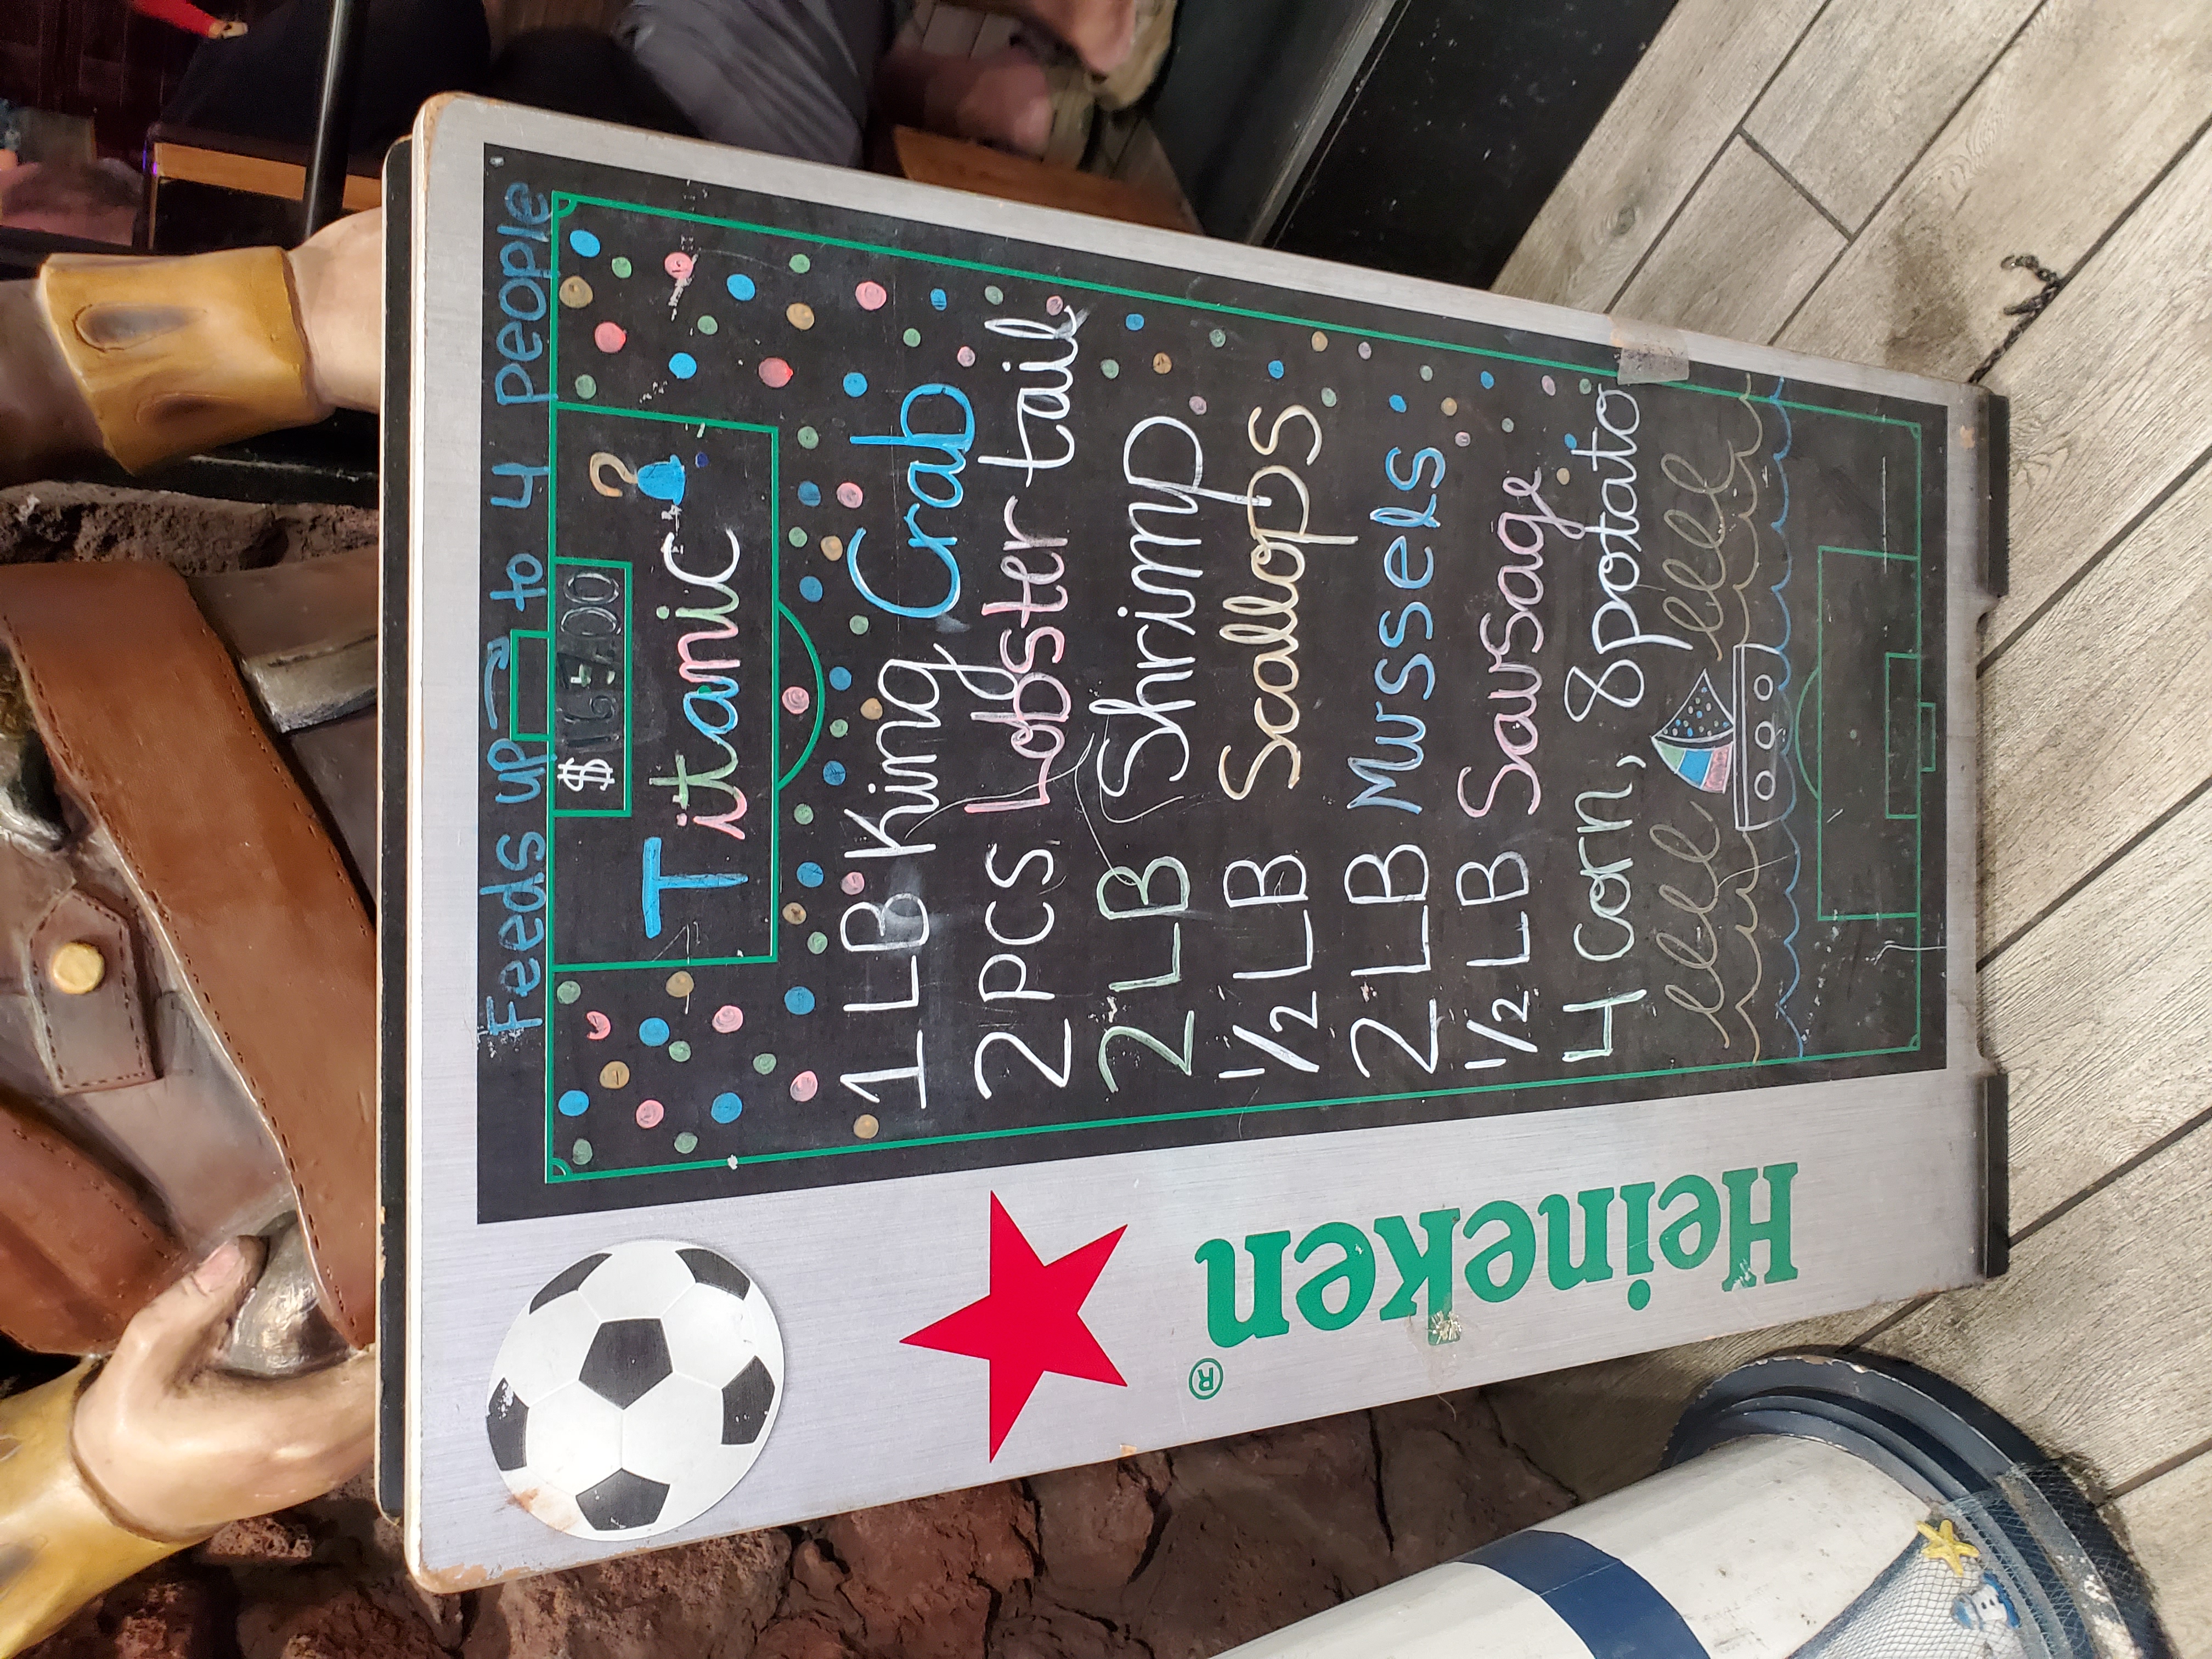 Feeds up → to 4 people
$167.00
Titanic
1 LB King Crab
2 PCS Lobster tail
2 LB Shrimp
1/2 LB Scallops
2 LB Mussels
1/2 LB Sausage
4 corn, 8 potato
Heineken®